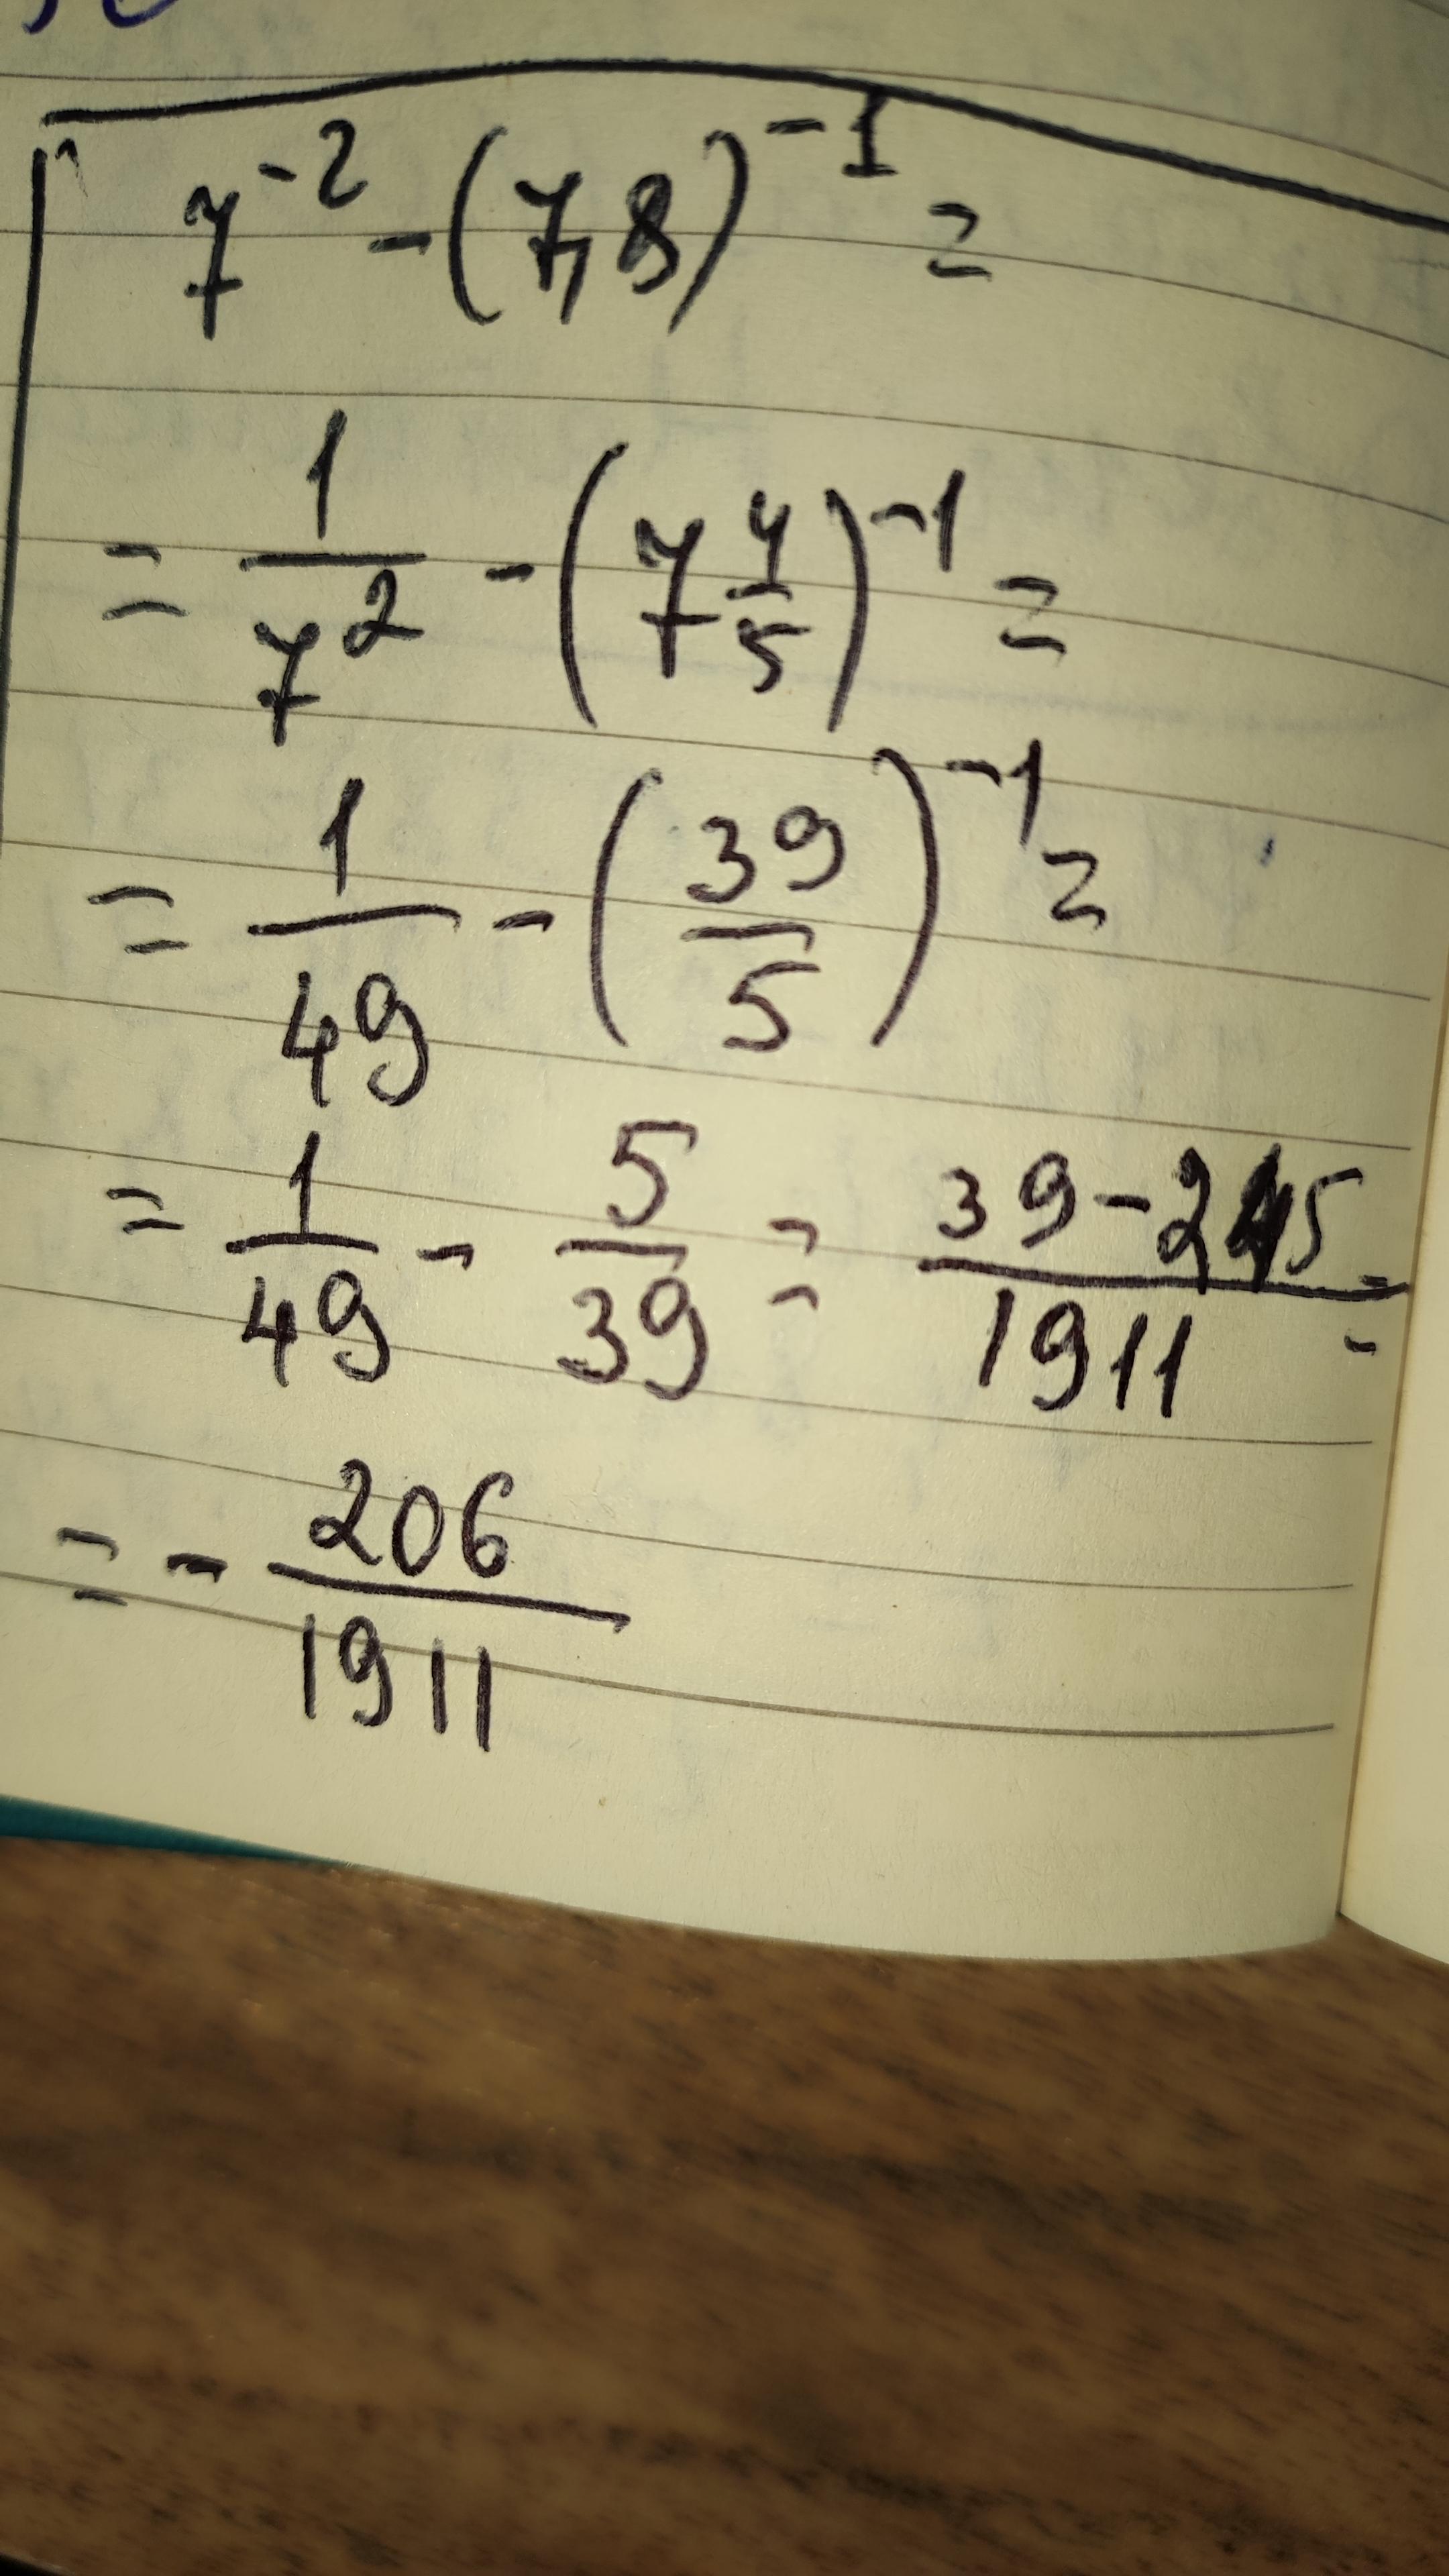 7⁻² - (7,8)⁻¹ =
= 1/7² - (7 4/5)⁻¹ =
= 1/49 - (39/5)⁻¹ =
= 1/49 - 5/39 = (39-245)/1911 =
= - 206/1911